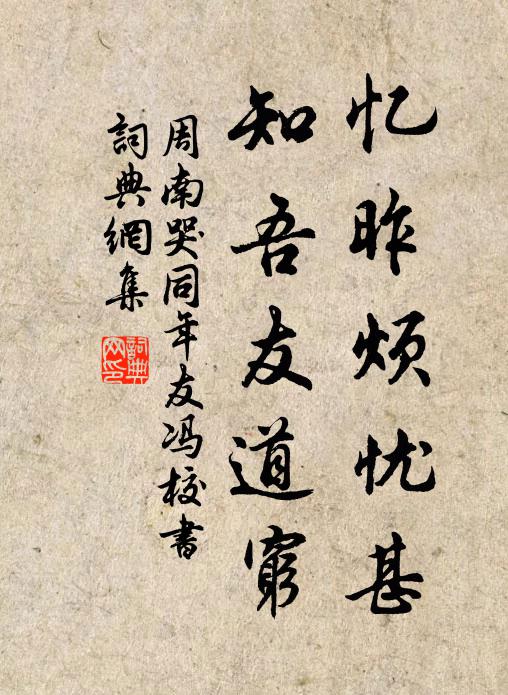 忆昨烦忧甚
知吾友道穷
周南哭同年友冯校書
詞典網集
詞典网印